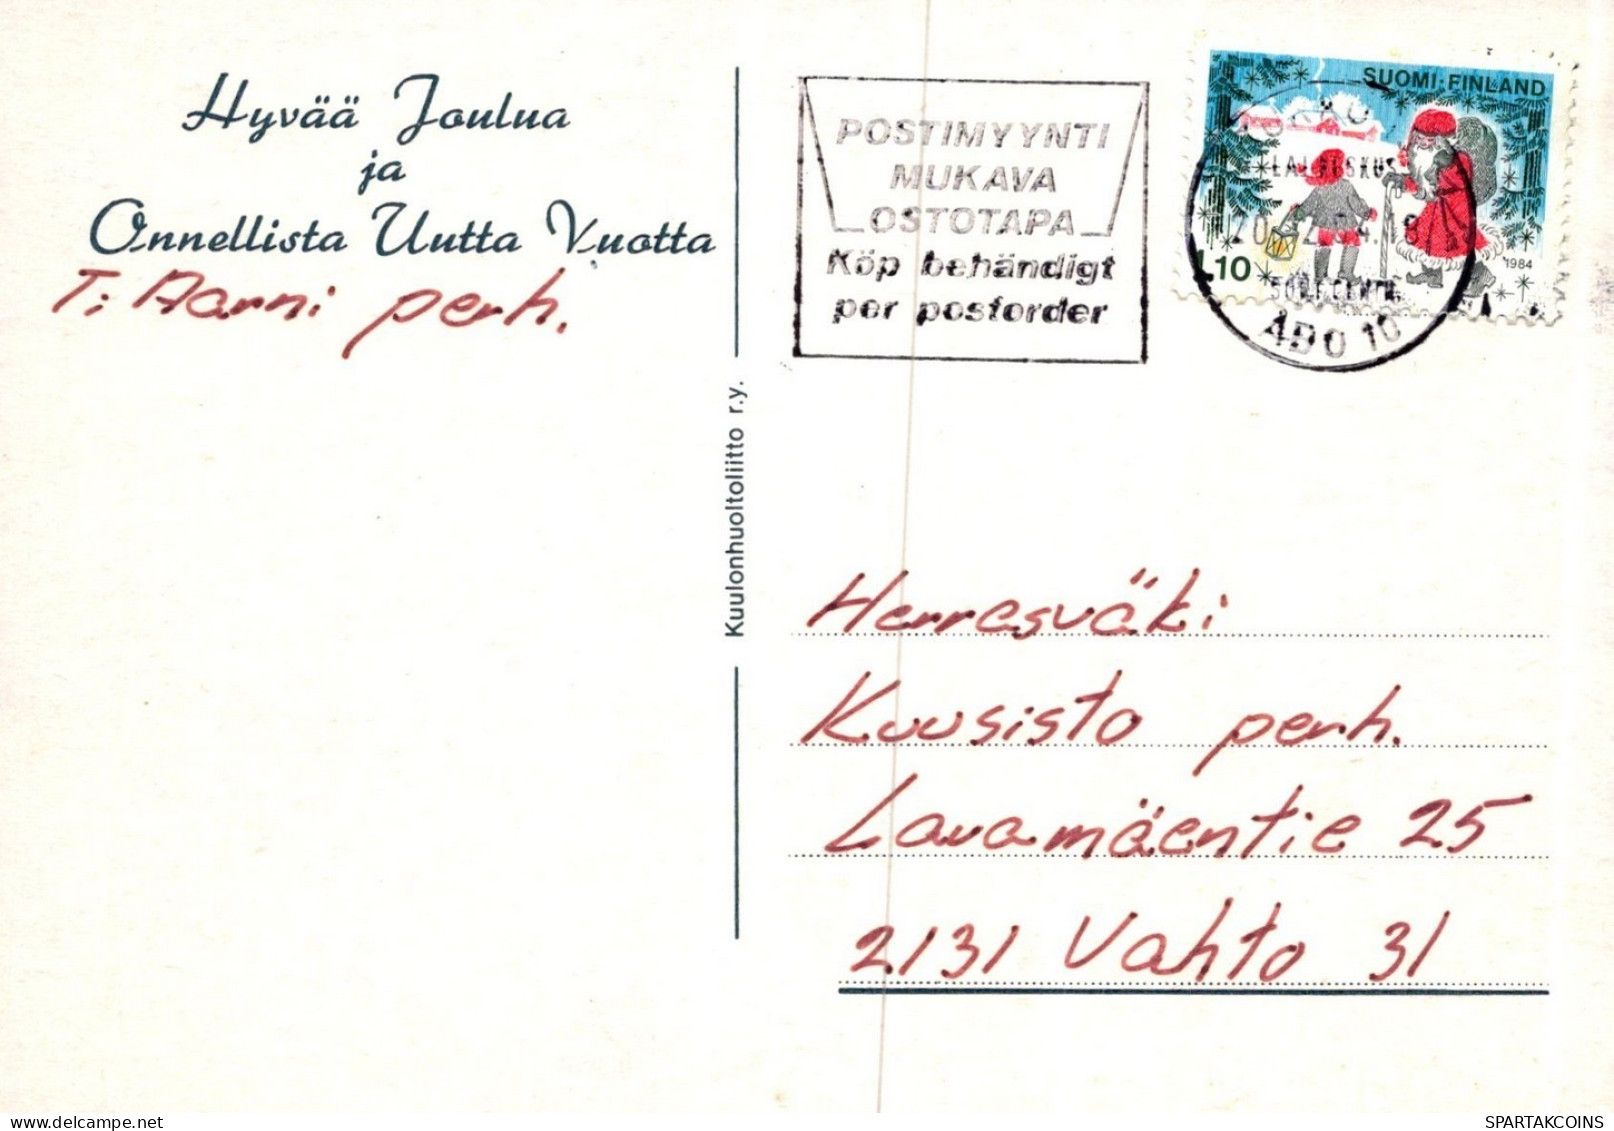 Hyvää Joulua
ja
Onnellista Uutta Vuotta
T: Aarni perh.
Kuulonhuoltoliitto r.y.
POSTIMYYNTI
MUKAVA
OSTOTAPA
Köp behändigt
per postorder
SUOMI-FINLAND
1984
1,10
ÅBO 10
Herrasväki
Kuusisto perh.
Lavamäentie 25
2131 Vahto 31
SPARTAKCOINS